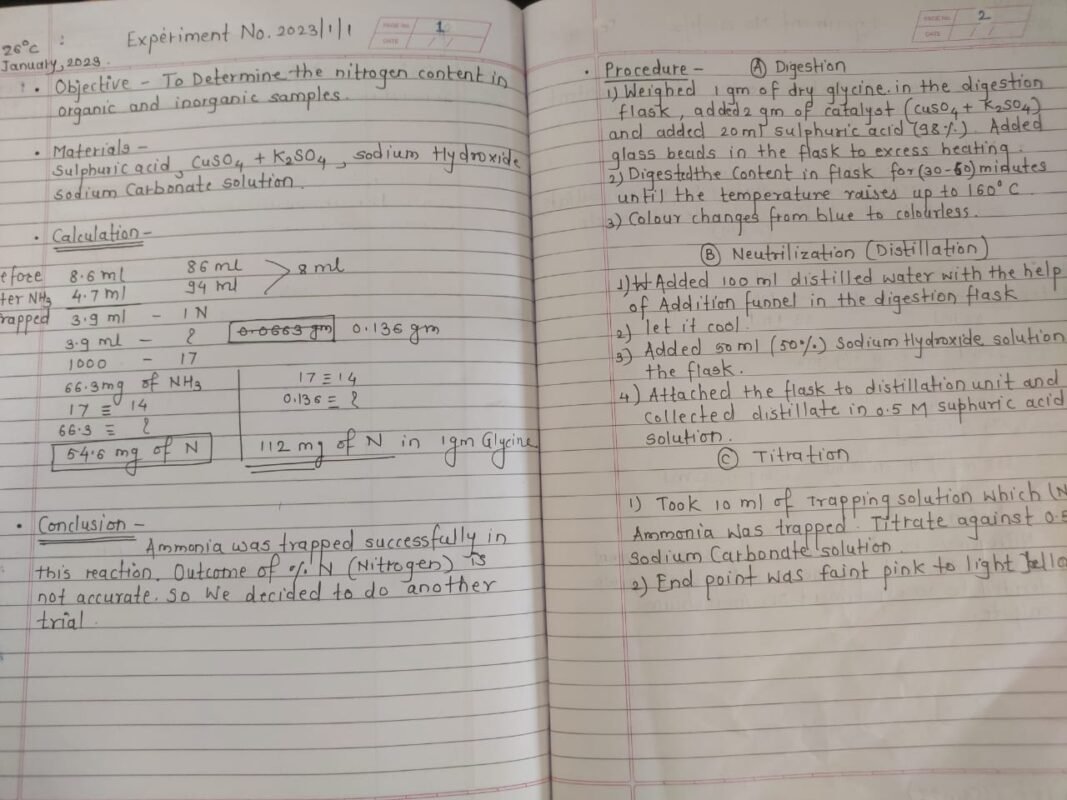 26°C :
January, 2023.
Experiment No. 2023/1/1
PAGE NO. 1
DATE / /
• Objective - To Determine the nitrogen content in
organic and inorganic samples.
• Materials -
Sulphuric acid, CuSO4 + K2SO4, sodium Hydroxide
sodium Carbonate solution.
• Calculation -
efore 8.6 ml 86 ml > 8 ml
ter NH3 4.7 ml 94 ml
rapped 3.9 ml - 1 N
3.9 ml - ? 0.0663 gm 0.136 gm
1000 - 17
66.3 mg of NH3 17 ≡ 14
17 ≡ 14 0.136 = ?
66.3 ≡ ?
54.6 mg of N 112 mg of N in 1gm Glycine
• Conclusion -
Ammonia was trapped successfully in
this reaction. Outcome of % N (Nitrogen) is
not accurate. so we decided to do another
trial.
PAGE NO. 2
DATE / /
• Procedure - (A) Digestion
1) Weighed 1 gm of dry glycine in the digestion
flask, added 2 gm of catalyst (CuSO4 + K2SO4)
and added 20 ml sulphuric acid (98%). Added
glass beads in the flask to excess heating.
2) Digested the content in flask for (30-60) midutes
until the temperature raises up to 160°C.
3) Colour changes from blue to colourless.
(B) Neutrilization (Distillation)
1) Added 100 ml distilled water with the help
of Addition funnel in the digestion flask
2) let it cool.
3) Added 50 ml (50%) Sodium Hydroxide solution
the flask.
4) Attached the flask to distillation unit and
collected distillate in 0.5 M suphuric acid
solution.
(C) Titration
1) Took 10 ml of Trapping solution which (N
Ammonia was trapped. Titrate against 0.5
Sodium Carbonate solution.
2) End point was faint pink to light Yello